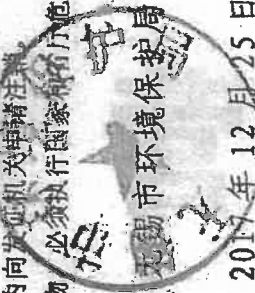 内向发证机关申请注销。
物 必须执行国家和省厅危
无锡市环境保护局
2017年12月25日